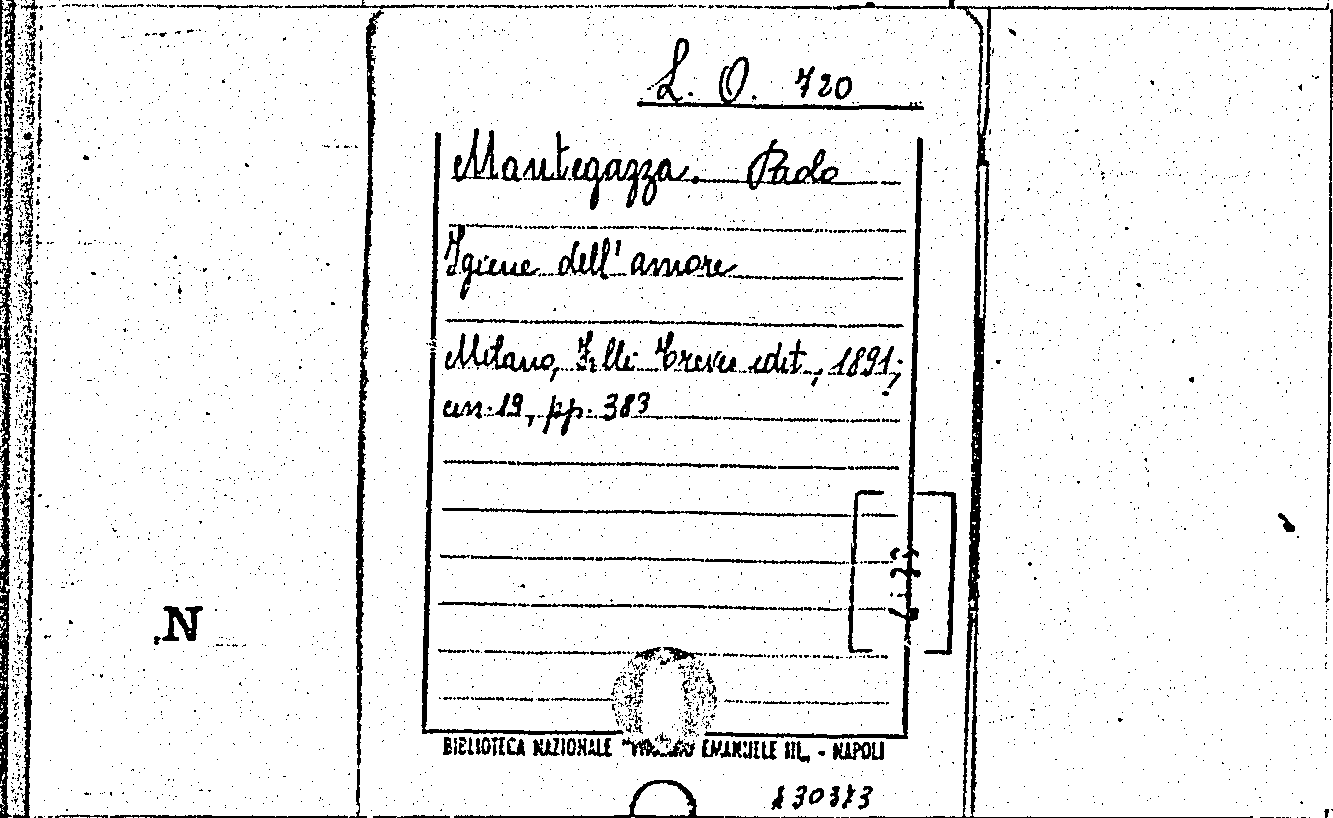 L. O. 720
Mantegazza. Paolo
Igiene dell' amore
Milano, F.lli Treves edit., 1891;
cm. 19, pp. 383
N
BIBLIOTECA NAZIONALE "VITTORIO EMANUELE III„ - NAPOLI